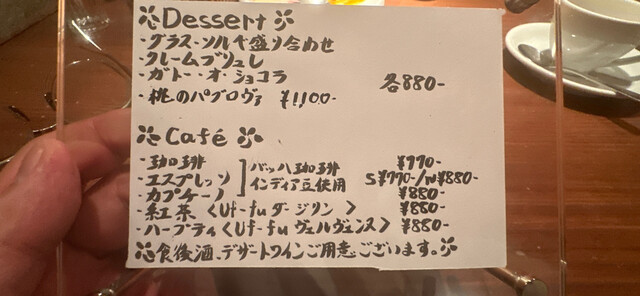 Dessert
・グラス・ソルベ盛り合わせ
・クレームブリュレ
・ガトー・オ・ショコラ 各880-
・桃のパブロヴァ ¥1,100-
Café
・珈琲 バッハ珈琲 ¥770-
・エスプレッソ インディア豆使用 S¥770-/W¥880-
・カプチーノ ¥880-
・紅茶〈Uf-fuダージリン〉 ¥880-
・ハーブティ〈Uf-fuヴェルヴェンヌ〉 ¥880-
食後酒、デザートワインご用意ございます。